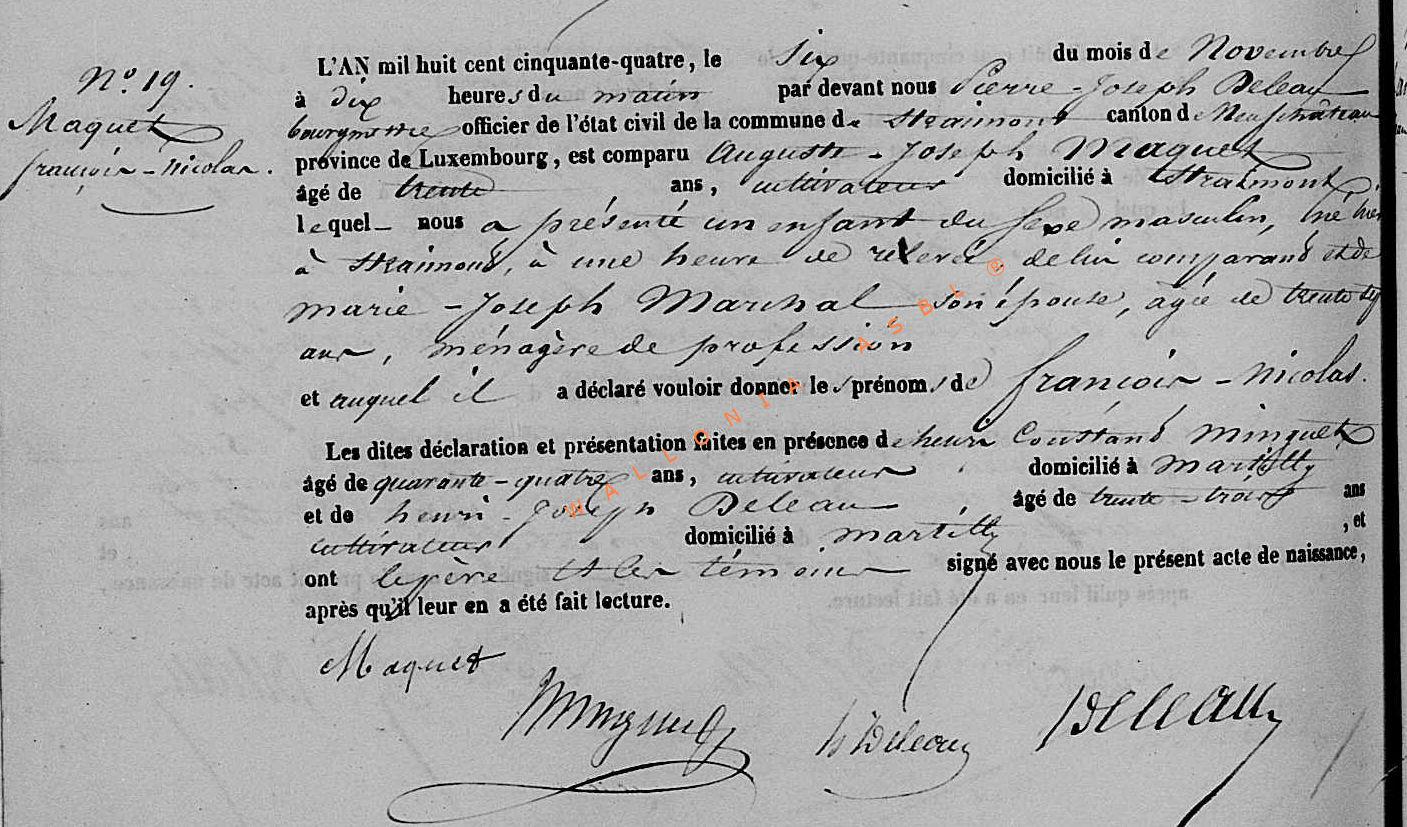 N.º 19.
Maquet
françois-nicolas.
L'AN mil huit cent cinquante-quatre, le six du mois de Novembre
à dix heures du matin par devant nous Pierre-Joseph Deleau
bourgmestre officier de l'état civil de la commune de Straimont canton de Neufchâteau
province de Luxembourg, est comparu Auguste-Joseph Maquet
âgé de trente ans, cultivateur domicilié à Straimont
lequel nous a présenté un enfant du sexe masculin, né hier
à Straimont, à une heure de relevée, de lui comparant et de
marie-Joseph Marchal son épouse, agée de trente
ans, ménagère de profession
et auquel il a déclaré vouloir donner les prénoms de françois-nicolas.
Les dites déclaration et présentation faites en présence de henri Constand Minguet
âgé de quarante-quatre ans, cultivateur domicilié à Martilly
et de henri-Joseph Deleau âgé de trente-trois ans
cultivateur domicilié à martilly, et
ont le père et les témoins signé avec nous le présent acte de naissance,
après qu'il leur en a été fait lecture.
Maquet
Minguet
h Deleau
Deleau
WALLONIA ASBL ®